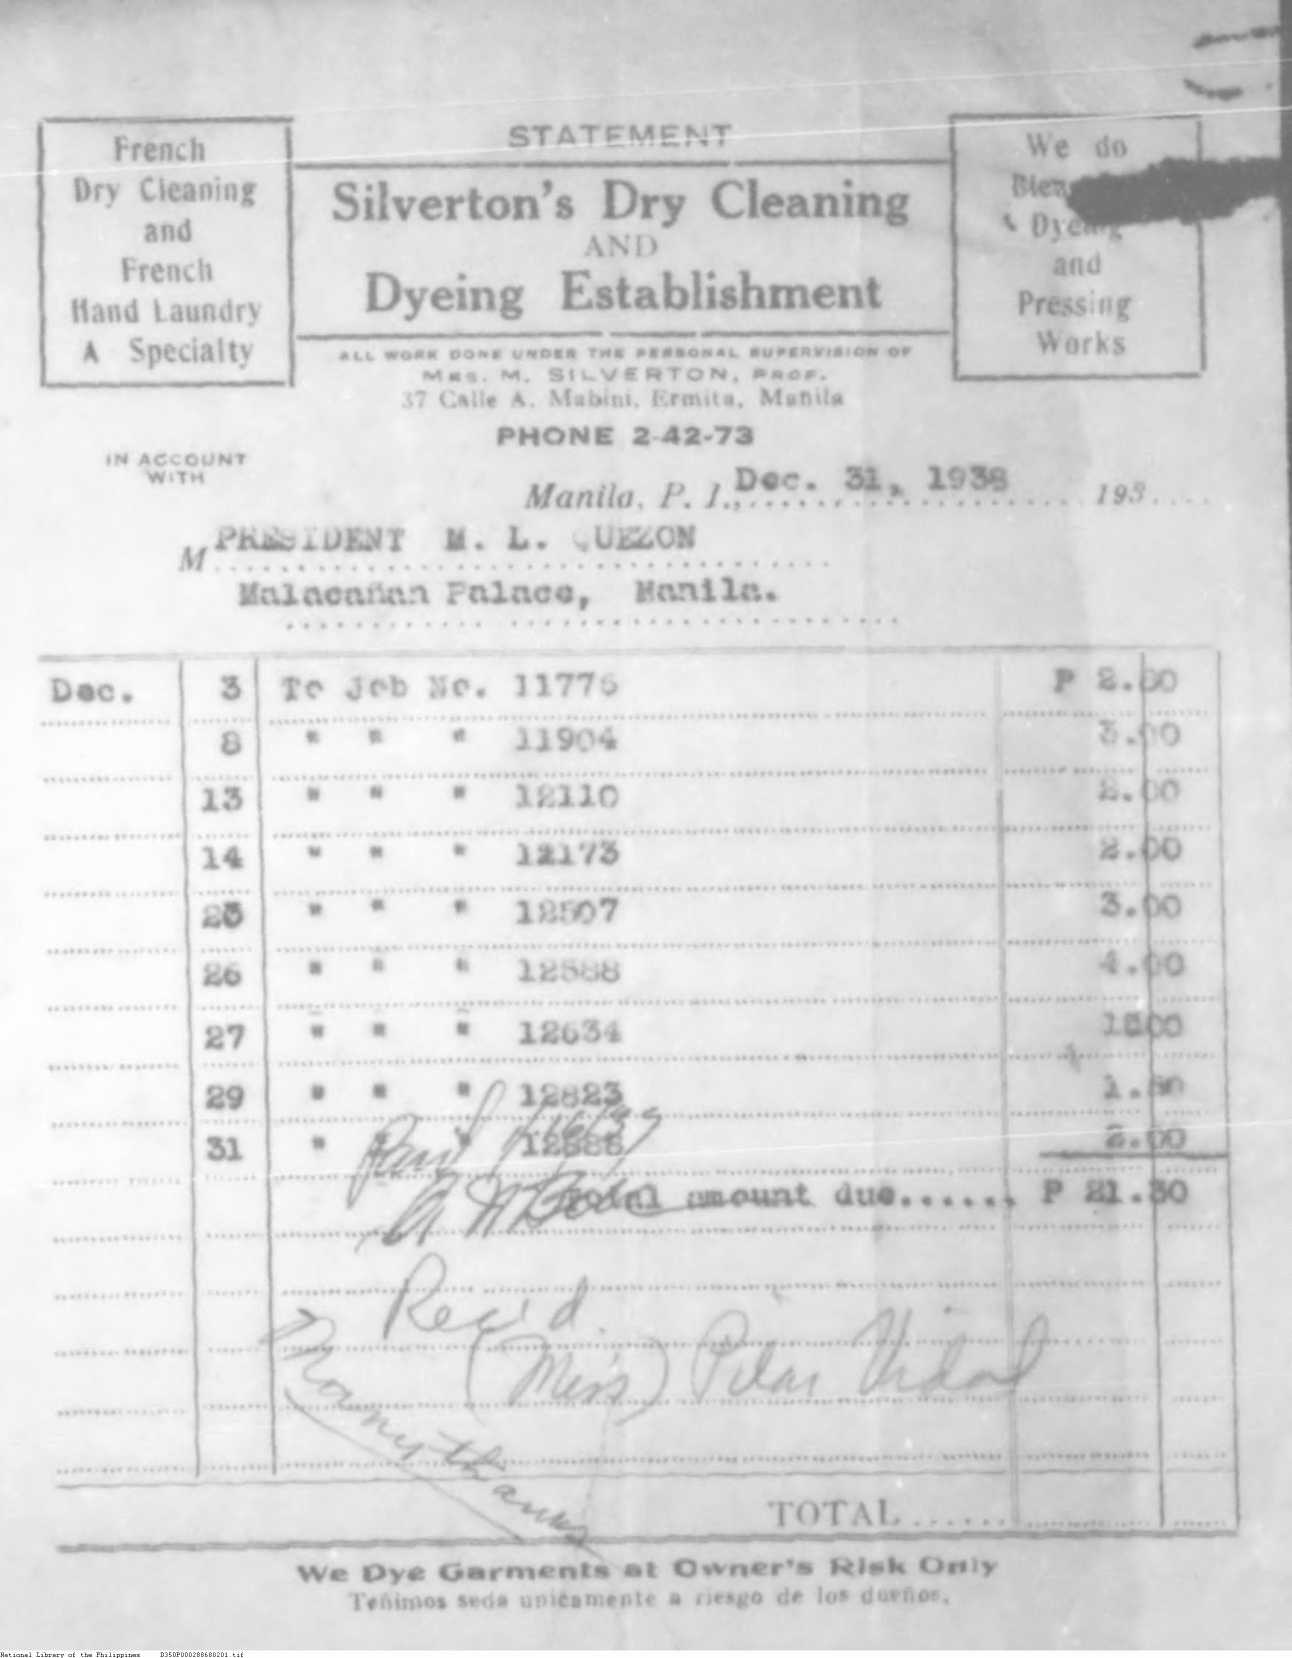 STATEMENT
French
Dry Cleaning
and
French
Hand Laundry
A Specialty
Silverton's Dry Cleaning
AND
Dyeing Establishment
We do
Dyeing
and
Pressing
Works
ALL WORK DONE UNDER THE PERSONAL SUPERVISION OF
MRS. M. SILVERTON, PROP.
37 Calle A. Mabini, Ermita, Manila
PHONE 2-42-73
IN ACCOUNT
WITH
Manila, P. I., Dec. 31, 1938 193
M PRESIDENT M. L. QUEZON
Malacañan Palace, Manila.
Dec. 3 To Job No. 11776 P
8 " " " 11904 3.00
13 " " " 12110 2.00
14 " " " 12173 2.00
" " " 12507 3.00
26 " " " 12588 4.00
27 " " " 12634
29 " " " 12823
31 " " " 2.00
Paid
Total amount due...... P 21.30
Rec'd.
(Miss) Pilar Vidal
Many thanks
TOTAL......
We Dye Garments at Owner's Risk Only
Teñimos seda unicamente a riesgo de los dueños.
National Library of the Philippines D350P000288680201.tif